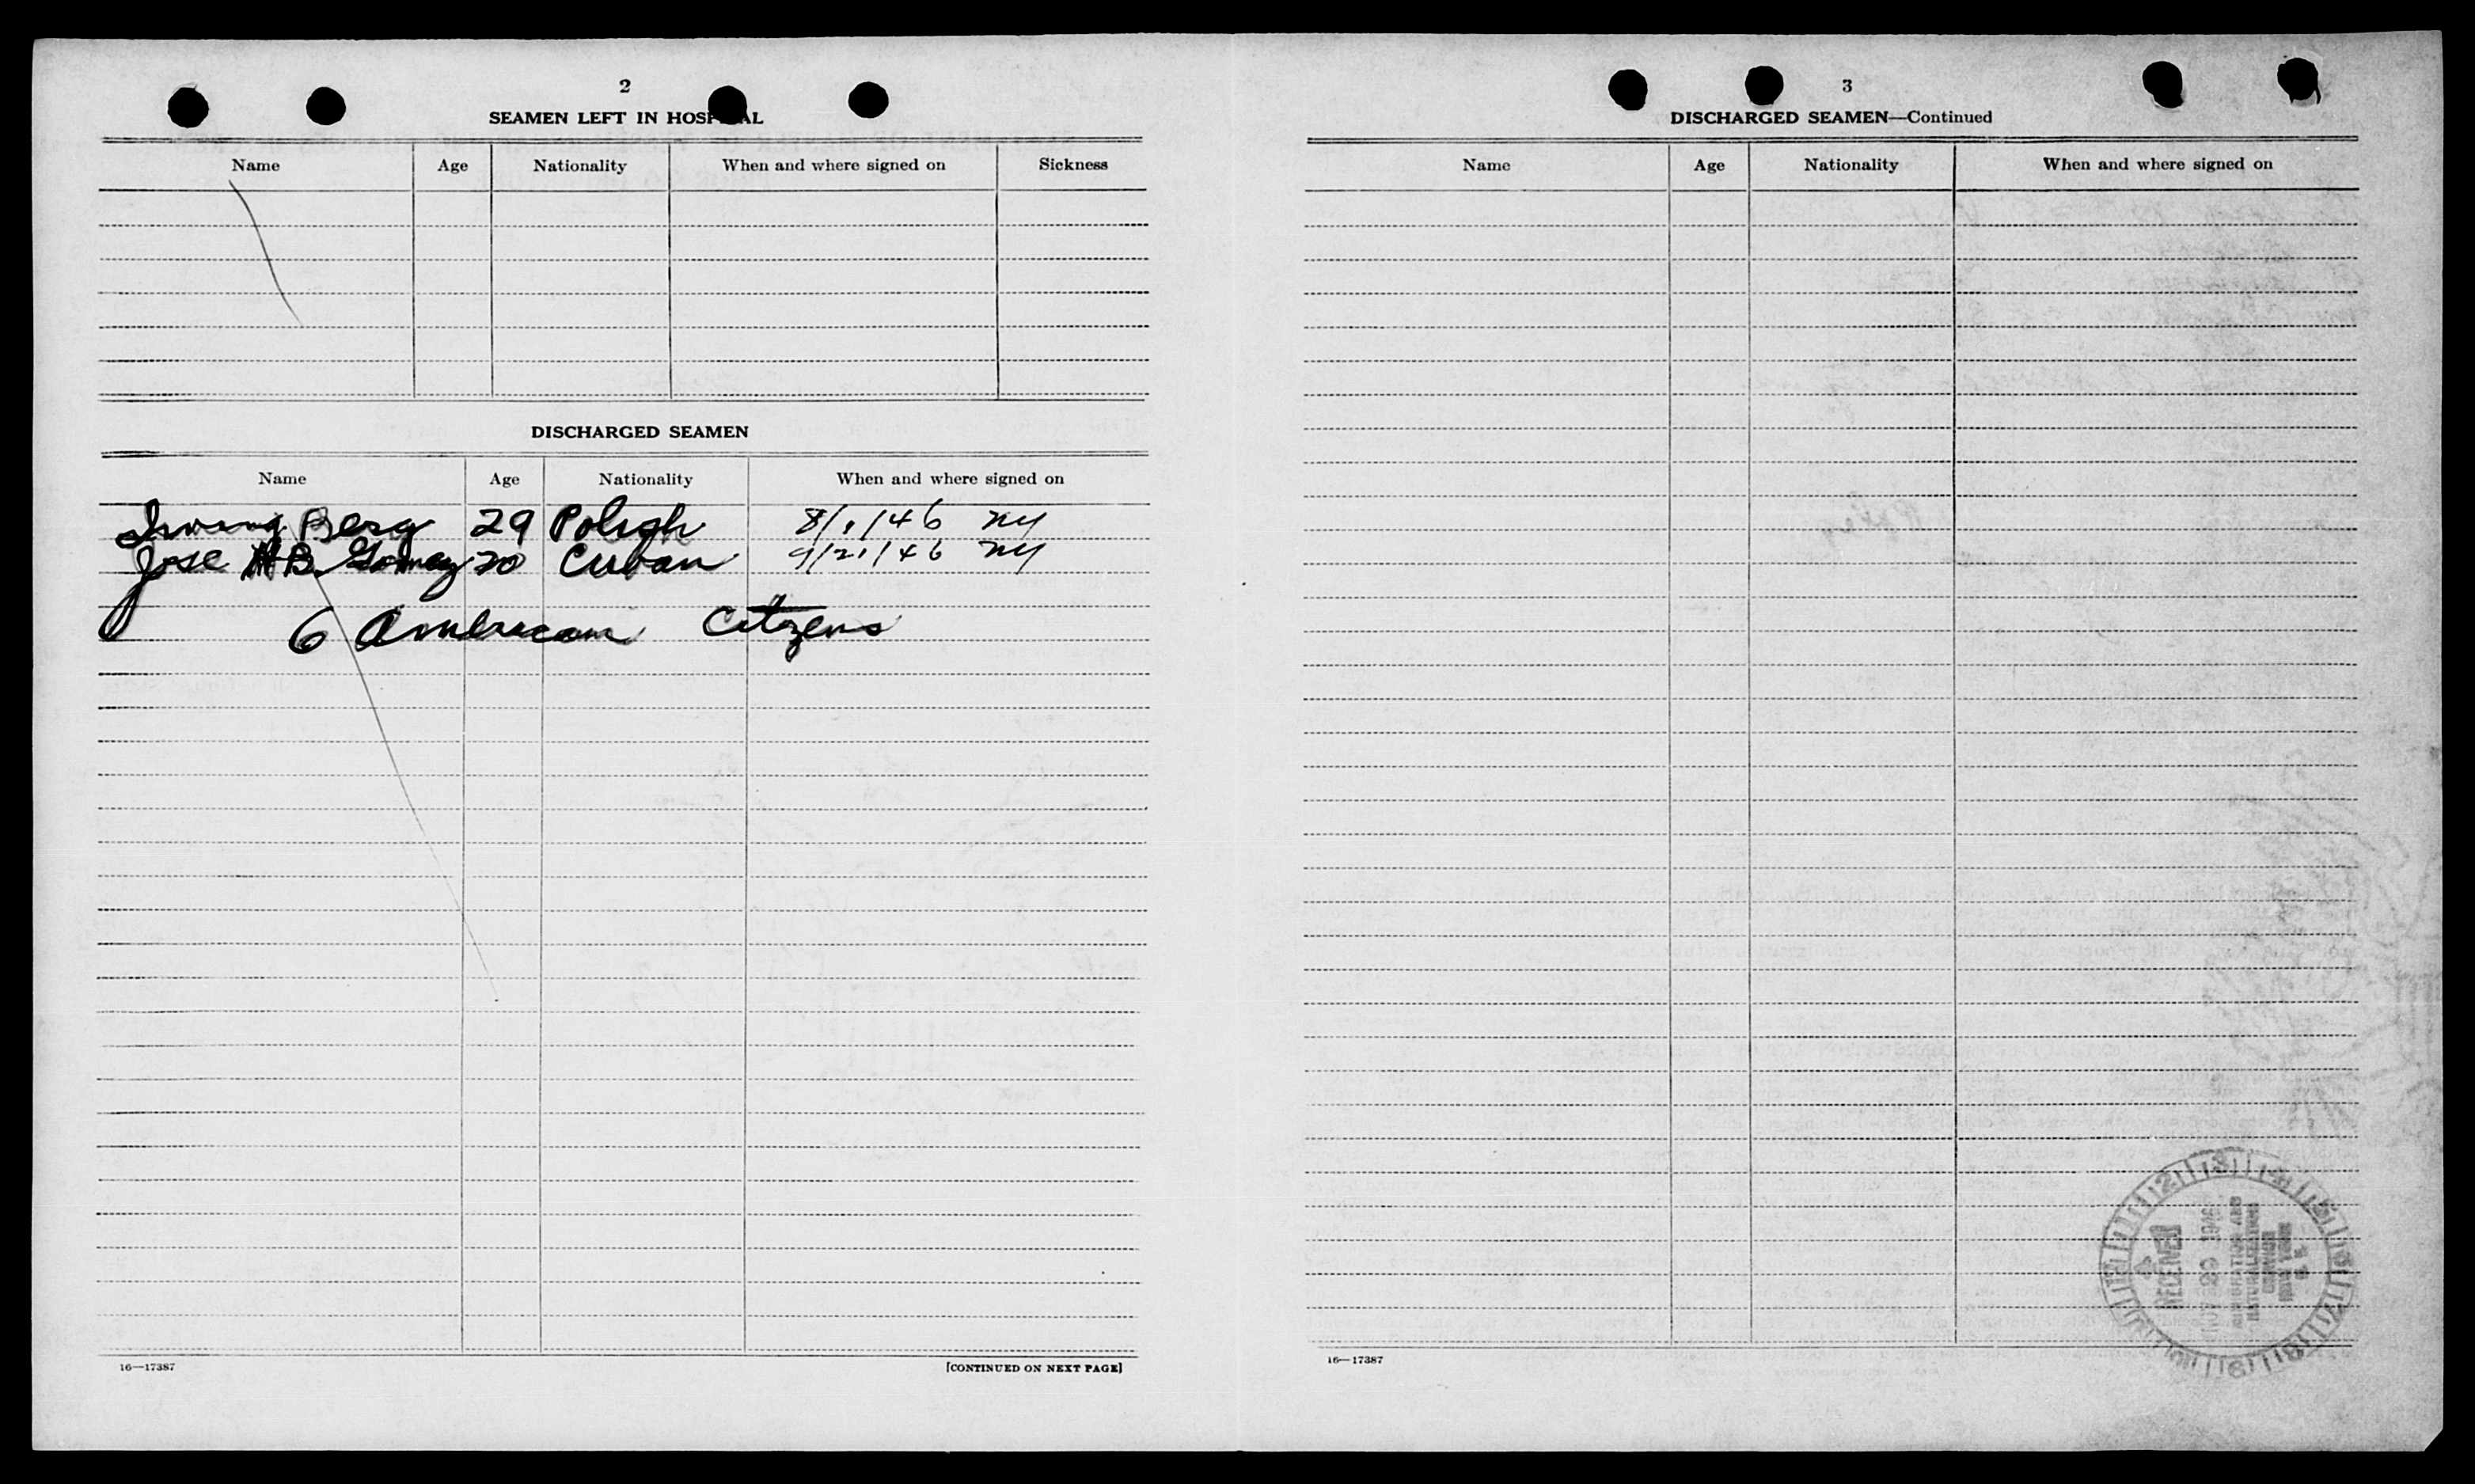 2
SEAMEN LEFT IN HOSPITAL
Name Age Nationality When and where signed on Sickness
DISCHARGED SEAMEN
Name Age Nationality When and where signed on
Irving Berg 29 Polish 8/1/46 NY
Jose B. Gomez 20 Cuban 9/21/46 NY
6 American Citizens
16—17387 [CONTINUED ON NEXT PAGE]
3
DISCHARGED SEAMEN—Continued
Name Age Nationality When and where signed on
RECEIVED
IMMIGRATION AND
NATURALIZATION
16—17387